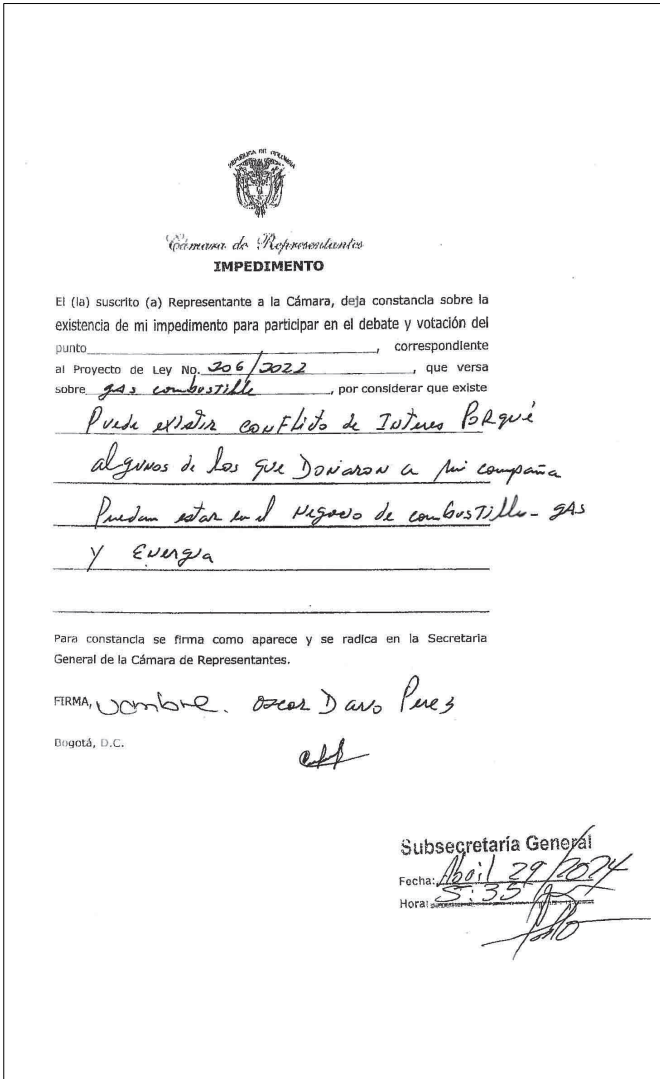 REPUBLICA DE COLOMBIA
Cámara de Representantes
IMPEDIMENTO
El (la) suscrito (a) Representante a la Cámara, deja constancia sobre la
existencia de mi impedimento para participar en el debate y votación del
punto____________________, correspondiente
al Proyecto de Ley No. 206/2022, que versa
sobre gas combustible, por considerar que existe
Puede existir conFlicto de Interes PoRqué
algunos de los que Donaron a mi campaña
Puedan estar en el Negocio de combustible - gAs
y Energia
Para constancia se firma como aparece y se radica en la Secretaria
General de la Cámara de Representantes.
FIRMA, Nombre. Oscar Dario Perez
Bogotá, D.C.
Subsecretaría General
Fecha: Abril 29/2024
Hora: 5:35